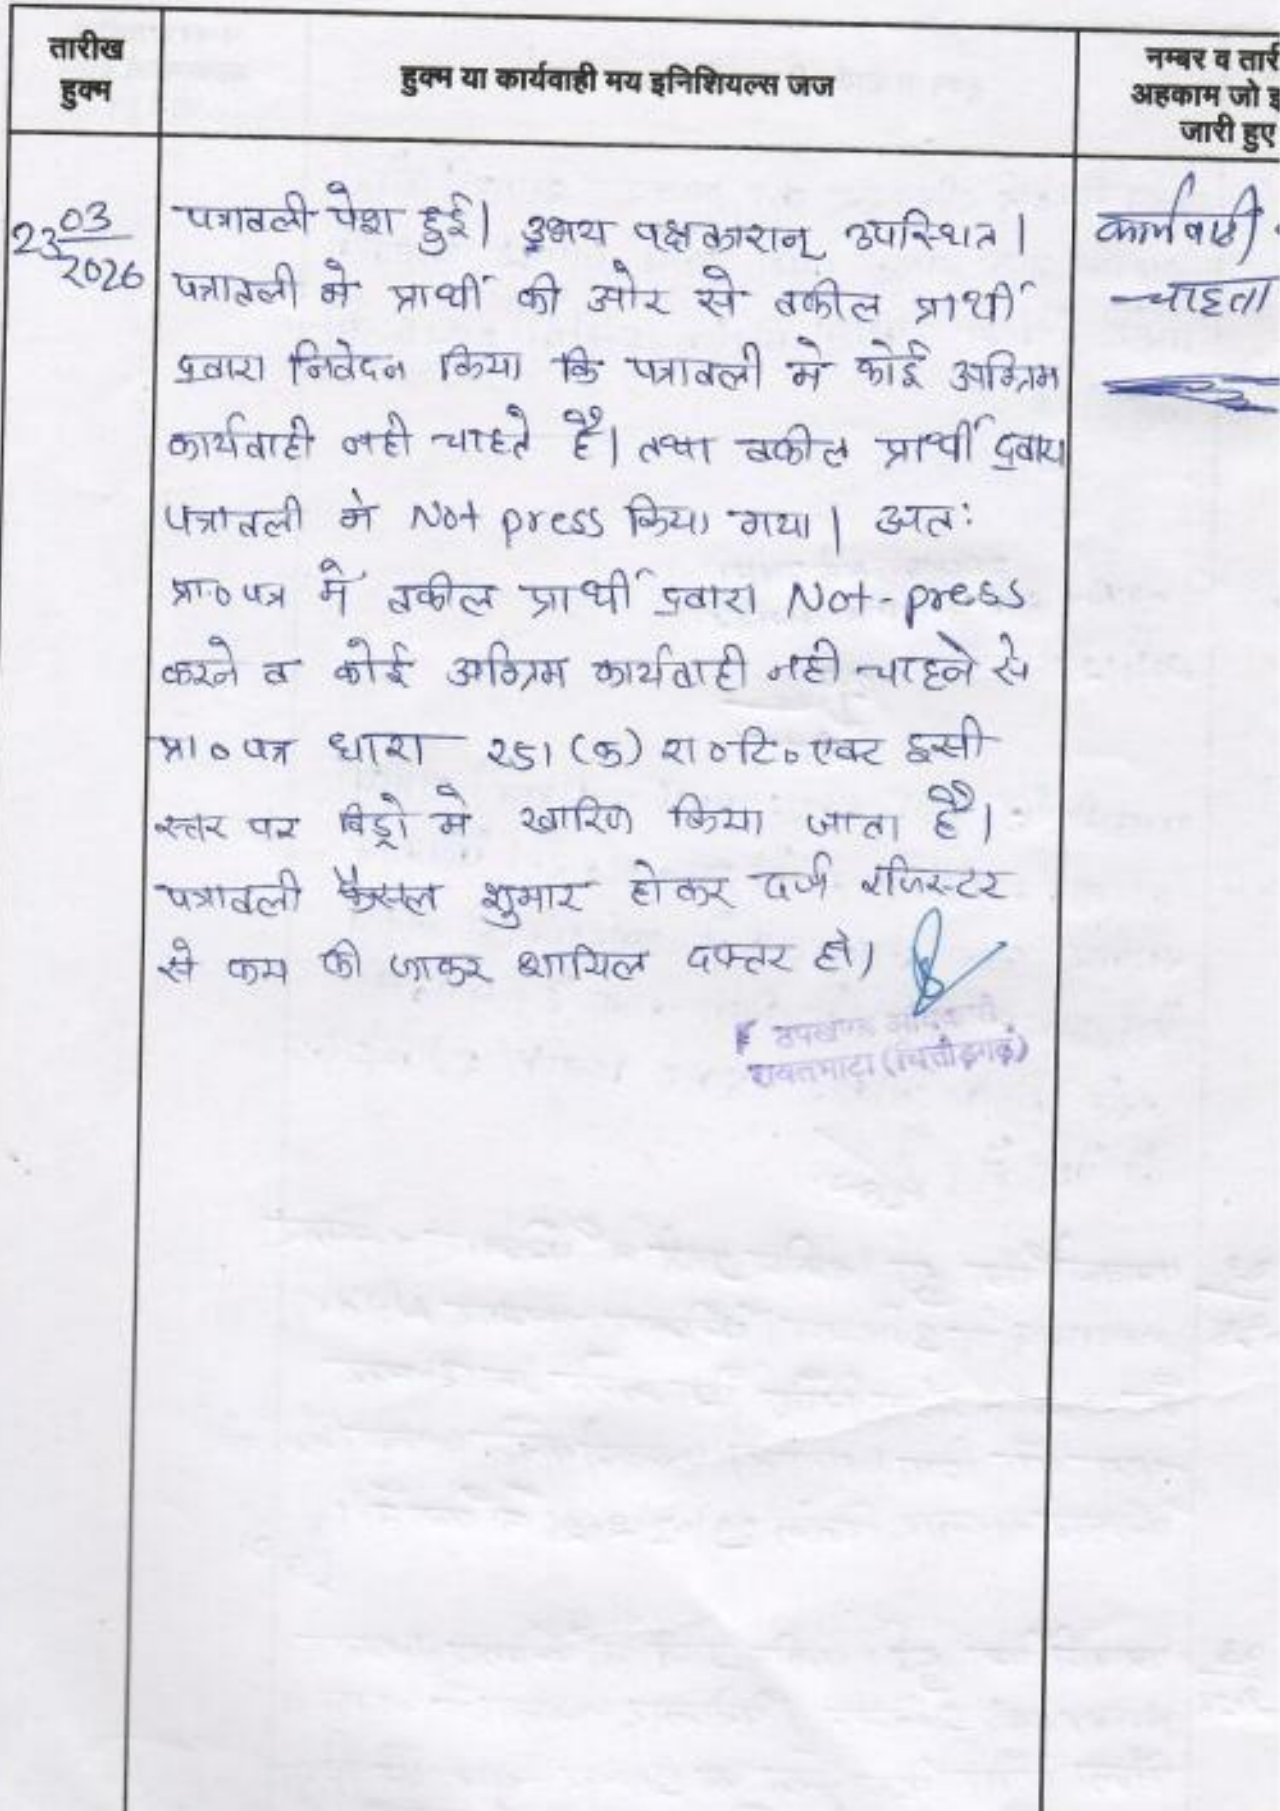 तारीख
हुक्म
हुक्म या कार्यवाही मय इनिशियल्स जज
नम्बर व तारी
अहकाम जो इ
जारी हुए
23 03
2026
पत्रावली पेश हुई। उभय पक्षकारान् उपस्थित।
पत्रावली मे प्रार्थी की ओर से वकील प्रार्थी
द्वारा निवेदन किया कि पत्रावली मे कोई अग्रिम
कार्यवाही नही चाहते है। तथा वकील प्रार्थी द्वारा
पत्रावली मे Not press किया गया। अतः
प्रा०पत्र मे वकील प्रार्थी द्वारा Not-press
करने व कोई अग्रिम कार्यवाही नही चाहने से
प्रा०पत्र धारा 251 (क) रा०टि०एक्ट इसी
स्तर पर विड्रो मे खारिज किया जाता है।
पत्रावली फैसल शुमार होकर दर्ज रजिस्टर
से कम की जाकर शामिल दफ्तर हो।
कार्यवाही
चाहता
उपखण्ड अधिकारी
रावतभाटा (चित्तौड़गढ़)